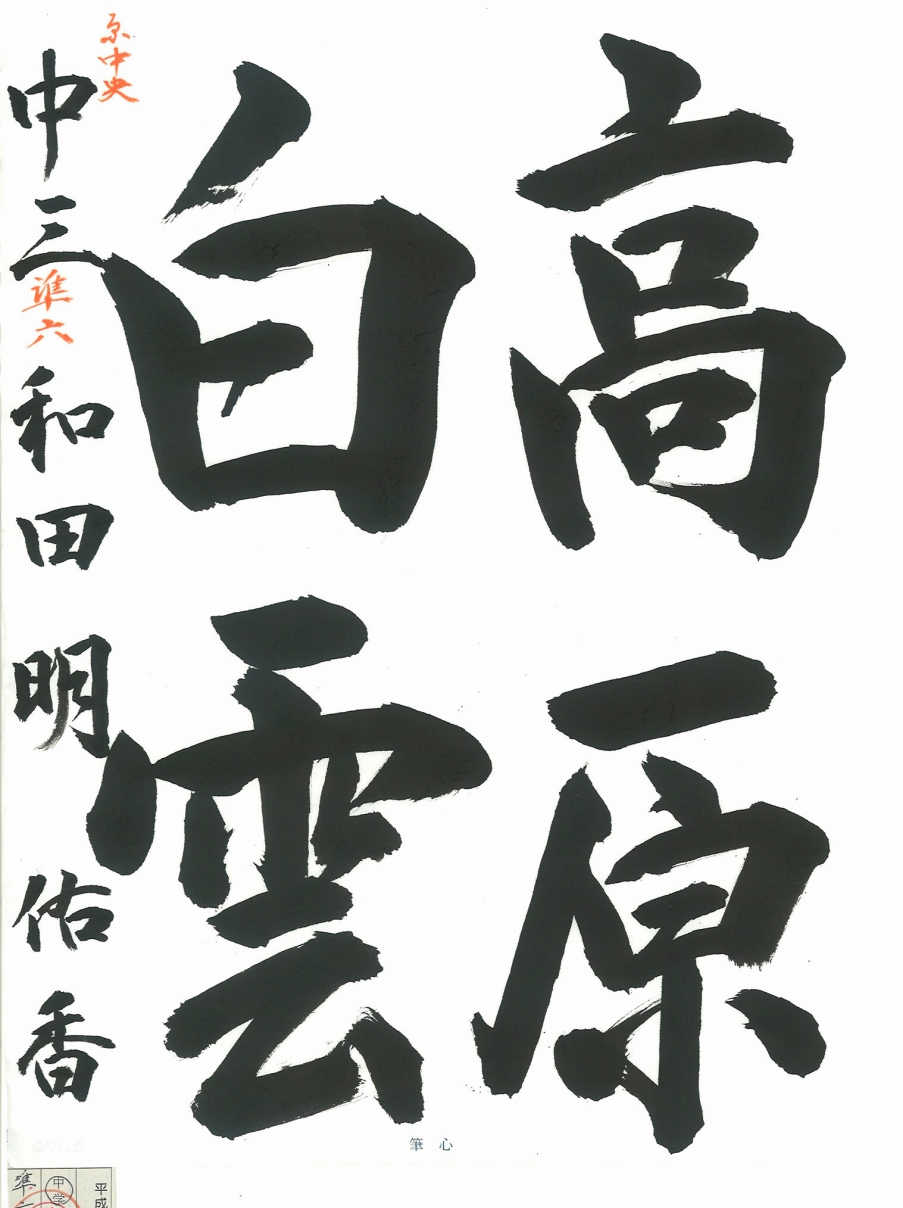 高原
白雲
原中央
中三 準六 和田明佑香
筆心
平成
中学
準二